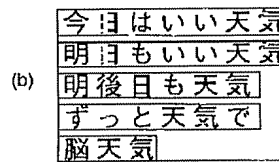 (b)
今日はいい天気
明日もいい天気
明後日も天気
ずっと天気で
脳天気